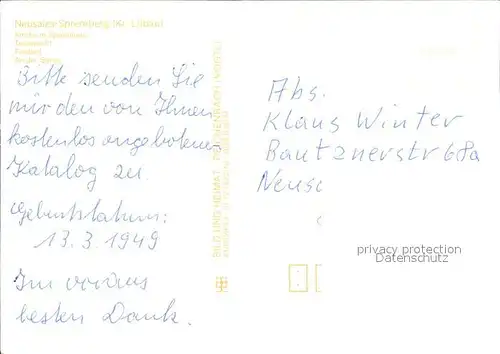 Neusalza Spremberg (Kr. Löbau)
Bitte senden Sie
mir den von Ihnen
kostenlos angebotenen
Katalog zu.
Geburtsdatum:
13.3.1949
Im voraus
besten Dank.
BILD UND HEIMAT REICHENBACH (VOGTL)
Abs.
Klaus Winter
Bautznerstr 68a
Neusa
privacy protection
Datenschutz